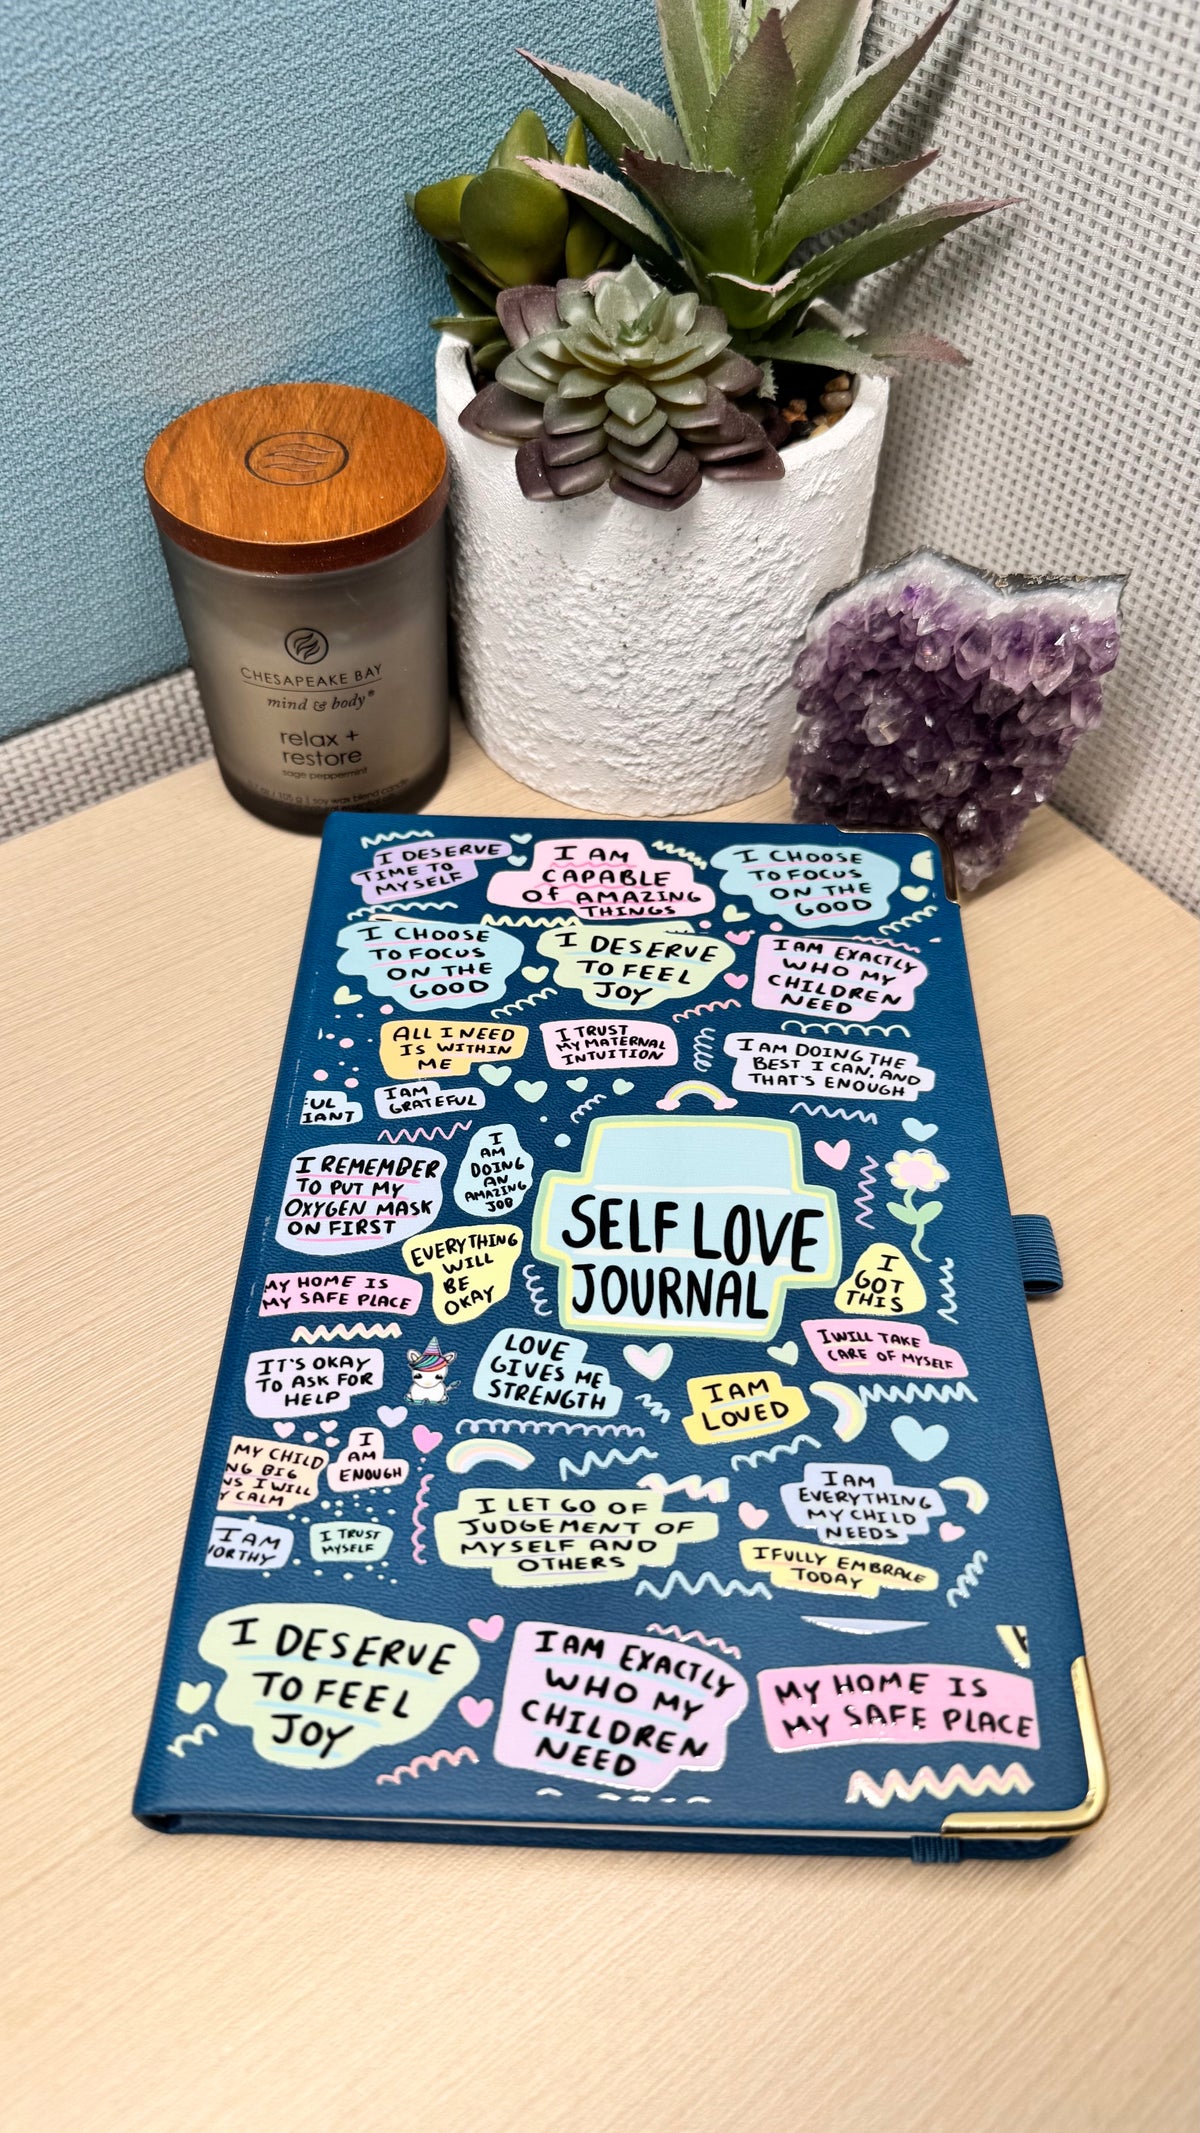 CHESAPEAKE BAY
mind & body®
relax +
restore
sage peppermint
I DESERVE
TIME TO
MYSELF
I AM
CAPABLE
Of AMAZING
THINGS
I CHOOSE
TO FOCUS
ON THE
GOOD
I CHOOSE
TO FOCUS
ON THE
GOOD
I DESERVE
TO FEEL
JOY
I AM EXACTLY
WHO MY
CHILDREN
NEED
ALL I NEED
IS WITHIN
ME
I TRUST
MY MATERNAL
INTUITION
I AM DOING THE
BEST I CAN, AND
THAT'S ENOUGH
I AM
GRATEFUL
I REMEMBER
TO PUT MY
OXYGEN MASK
ON FIRST
I
AM
DOING
AN
AMAZING
JOB
SELF LOVE
JOURNAL
EVERYTHING
WILL
BE
OKAY
I
GOT
THIS
MY HOME IS
MY SAFE PLACE
I WILL TAKE
CARE OF MYSELF
IT'S OKAY
TO ASK FOR
HELP
LOVE
GIVES ME
STRENGTH
I AM
LOVED
MY CHILD
NG BIG
NS I WILL
Y CALM
I
AM
ENOUGH
I AM
EVERYTHING
MY CHILD
NEEDS
I LET GO OF
JUDGEMENT OF
MYSELF AND
OTHERS
I AM
ORTHY
I TRUST
MYSELF
I FULLY EMBRACE
TODAY
I DESERVE
TO FEEL
JOY
I AM EXACTLY
WHO MY
CHILDREN
NEED
MY HOME IS
MY SAFE PLACE